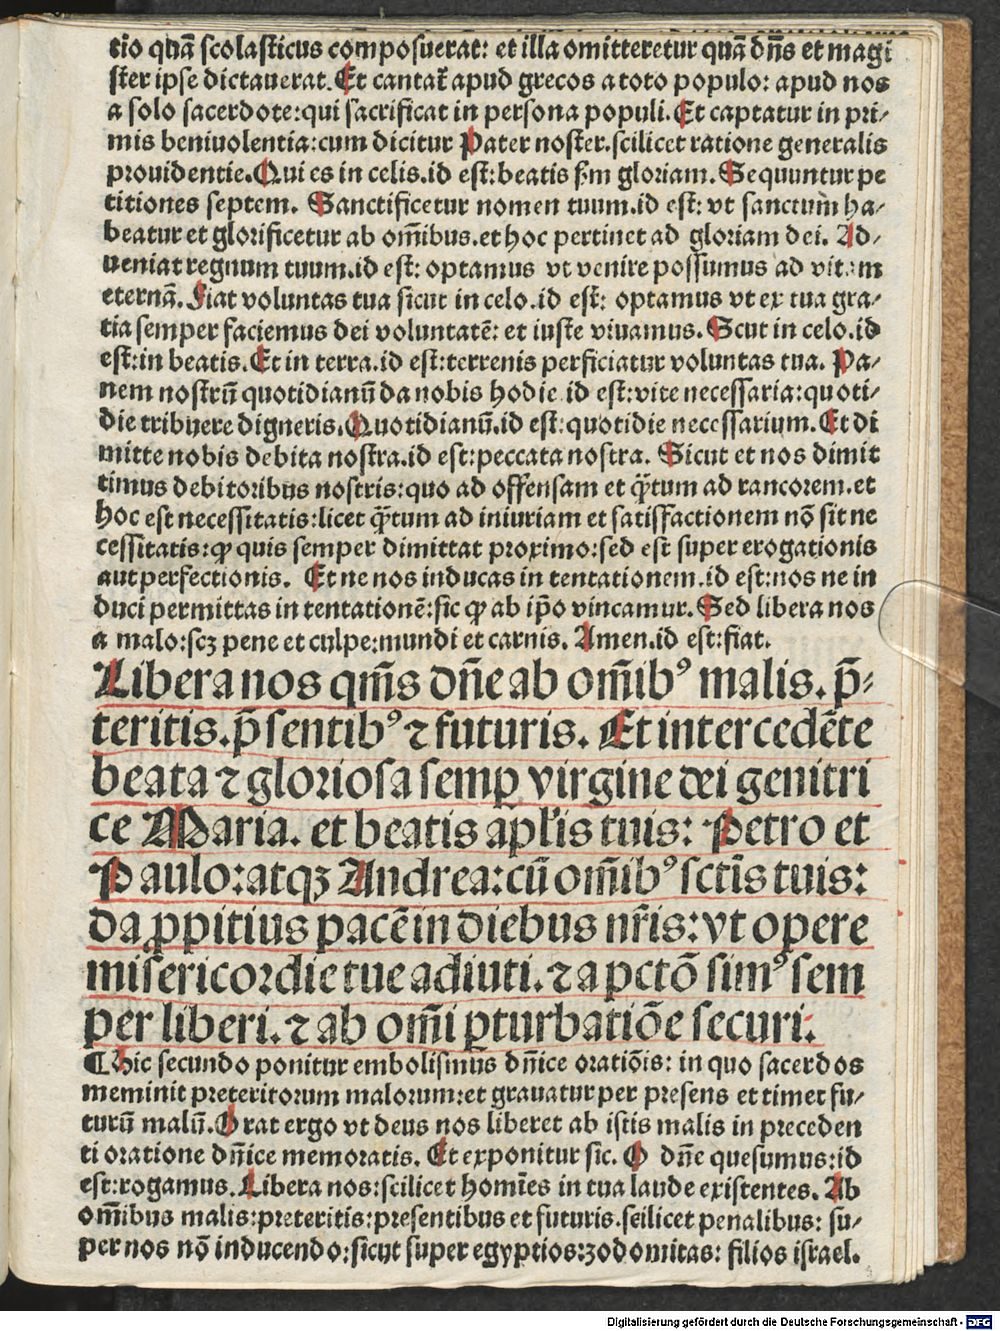 tio quā scolasticus composuerat: et illa omitteretur quā dñs et magi
ster ipse dictauerat. Et cantat̄ apud grecos a toto populo: apud nos
a solo sacerdote: qui sacrificat in persona populi. Et captatur in pri-
mis beniuolentia: cum dicitur Pater noster. scilicet ratione generalis
prouidentie. Qui es in celis. id est: beatis s̄m gloriam. Sequuntur pe
titiones septem. Sanctificetur nomen tuum. id est: vt sanctum ha-
beatur et glorificetur ab om̄ibus. et hoc pertinet ad gloriam dei. Ad-
ueniat regnum tuum. id est: optamus vt venire possumus ad vitam
eternā. Fiat voluntas tua sicut in celo. id est: optamus vt ex tua gra-
tia semper faciemus dei voluntatē: et iuste viuamus. Scut in celo. id
est: in beatis. Et in terra. id est: terrenis perficiatur voluntas tua. Pa-
nem nostrū quotidianū da nobis hodie id est: vite necessaria: quoti-
die tribuere digneris. Quotidianū. id est: quotidie necessarium. Et di
mitte nobis debita nostra. id est: peccata nostra. Sicut et nos dimit
timus debitoribus nostris: quo ad offensam et q̄tum ad rancorem. et
hoc est necessitatis: licet q̄tum ad iniuriam et satisfactionem nō sit ne
cessitatis: ꝙ quis semper dimittat proximo: sed est super erogationis
aut perfectionis. Et ne nos inducas in tentationem. id est: nos ne in
duci permittas in tentationē: sic ꝙ ab ip̄o vincamur. Sed libera nos
a malo: scꝫ pene et culpe: mundi et carnis. Amen. id est: fiat.
Libera nos qm̄s dn̄e ab om̄ibꝰ malis. p̄-
teritis. p̄sentibꝰ ⁊ futuris. Et intercedēte
beata ⁊ gloriosa semꝑ virgine dei genitri
ce Maria. et beatis apl'is tuis: Petro et
Paulo: atqꝫ Andrea: cū om̄ibꝰ sctīs tuis:
da ꝓpitius pacē in diebus nr̄is: vt opere
misericordie tue adiuti. ⁊ a pctō simꝰ sem
per liberi. ⁊ ab om̄i ꝑturbatiōe securi.
¶ Hic secundo ponitur embolismus dn̄ice oratiōis: in quo sacerdos
meminit preteritorum malorum: et grauatur per presens et timet fu-
turū malū. Orat ergo vt deus nos liberet ab istis malis in preceden
ti oratione dn̄ice memoratis. Et exponitur sic. O dn̄e quesumus: id
est: rogamus. Libera nos: scilicet homīes in tua laude existentes. Ab
om̄ibus malis: preteritis: presentibus et futuris. scilicet penalibus: su-
per nos nō inducendo: sicut super egyptios: zodomitas: filios israel.
Digitalisierung gefördert durch die Deutsche Forschungsgemeinschaft - DFG